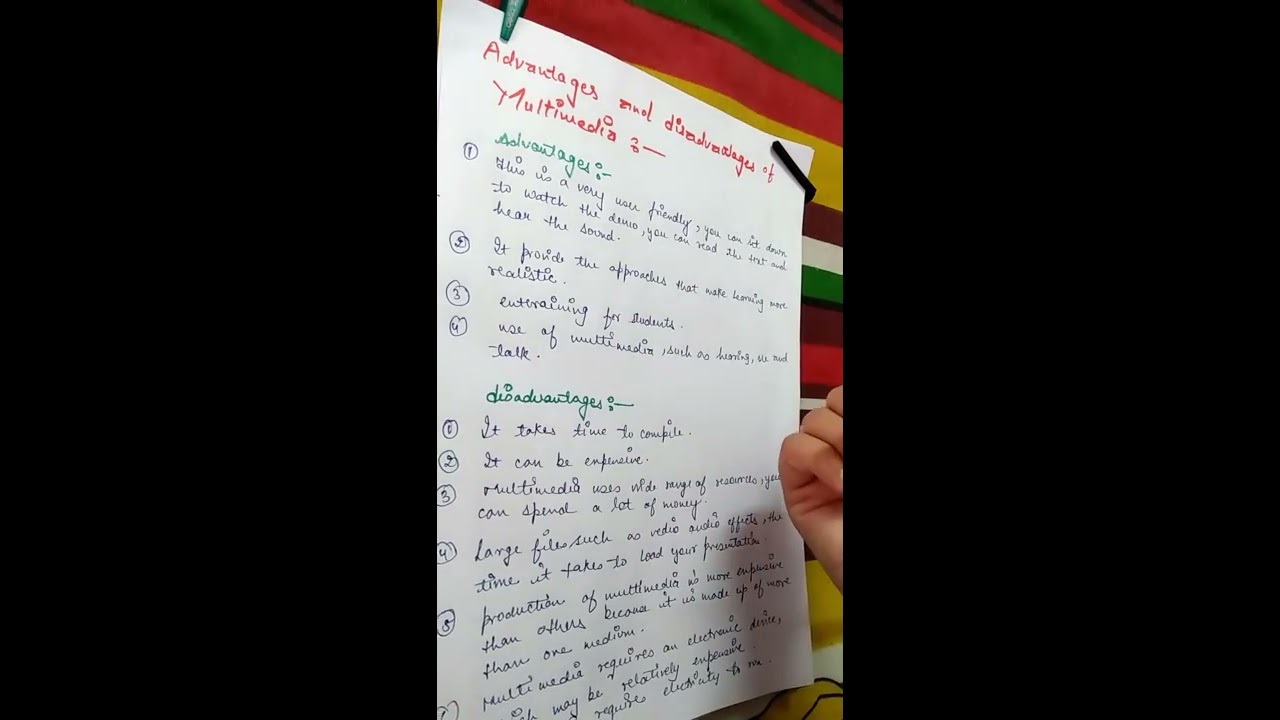 Advantages and disadvantages of
Multimedia :—
Advantages :-
① This is a very user friendly, you can sit down
to watch the demo, you can read the text and
hear the sound.
② It provide the approaches that make learning more
realistic.
③ entertaining for students.
④ use of multimedia, such as hearing, see and
talk.
disadvantages :—
① It takes time to compile.
② It can be expensive.
③ Multimedia uses wide range of resources, you
can spend a lot of money.
④ Large files such as vedio audio effects, the
time it takes to load your presentation.
⑤ production of multimedia is more expensive
than others because it is made up of more
than one medium.
Multimedia requires an electronic device,
may be relatively expensive.
require electricity to run.